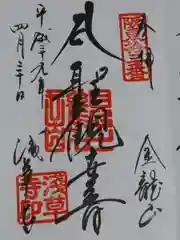 奉拝
金龍山
聖観世音
浅草寺
平成二十九年
四月三十日
浅草
寺印